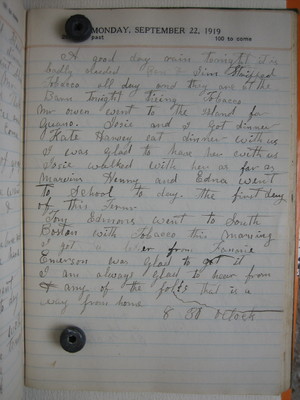 MONDAY, SEPTEMBER 22, 1919
past 100 to come
A good day rain tonight It is
badly needed Sims Striped
Tobacco all day and they are at the
Barn tonight Tieing Tobacco
Mr owen went to the Island for
Guano. Josie and I got dinner
Kate Harvey eat dinner with us
I was glad to have her with us
Josie walked with her as far as
Marvins Henry and Edna went
to School to day the first day
of this Term
Tom Simons went to South
Boston with Tobacco this morning
I got a letter from Fannie
Emerson was glad to get it
I am always glad to hear from
any of the folks that is a
way from home
8 30 oclock